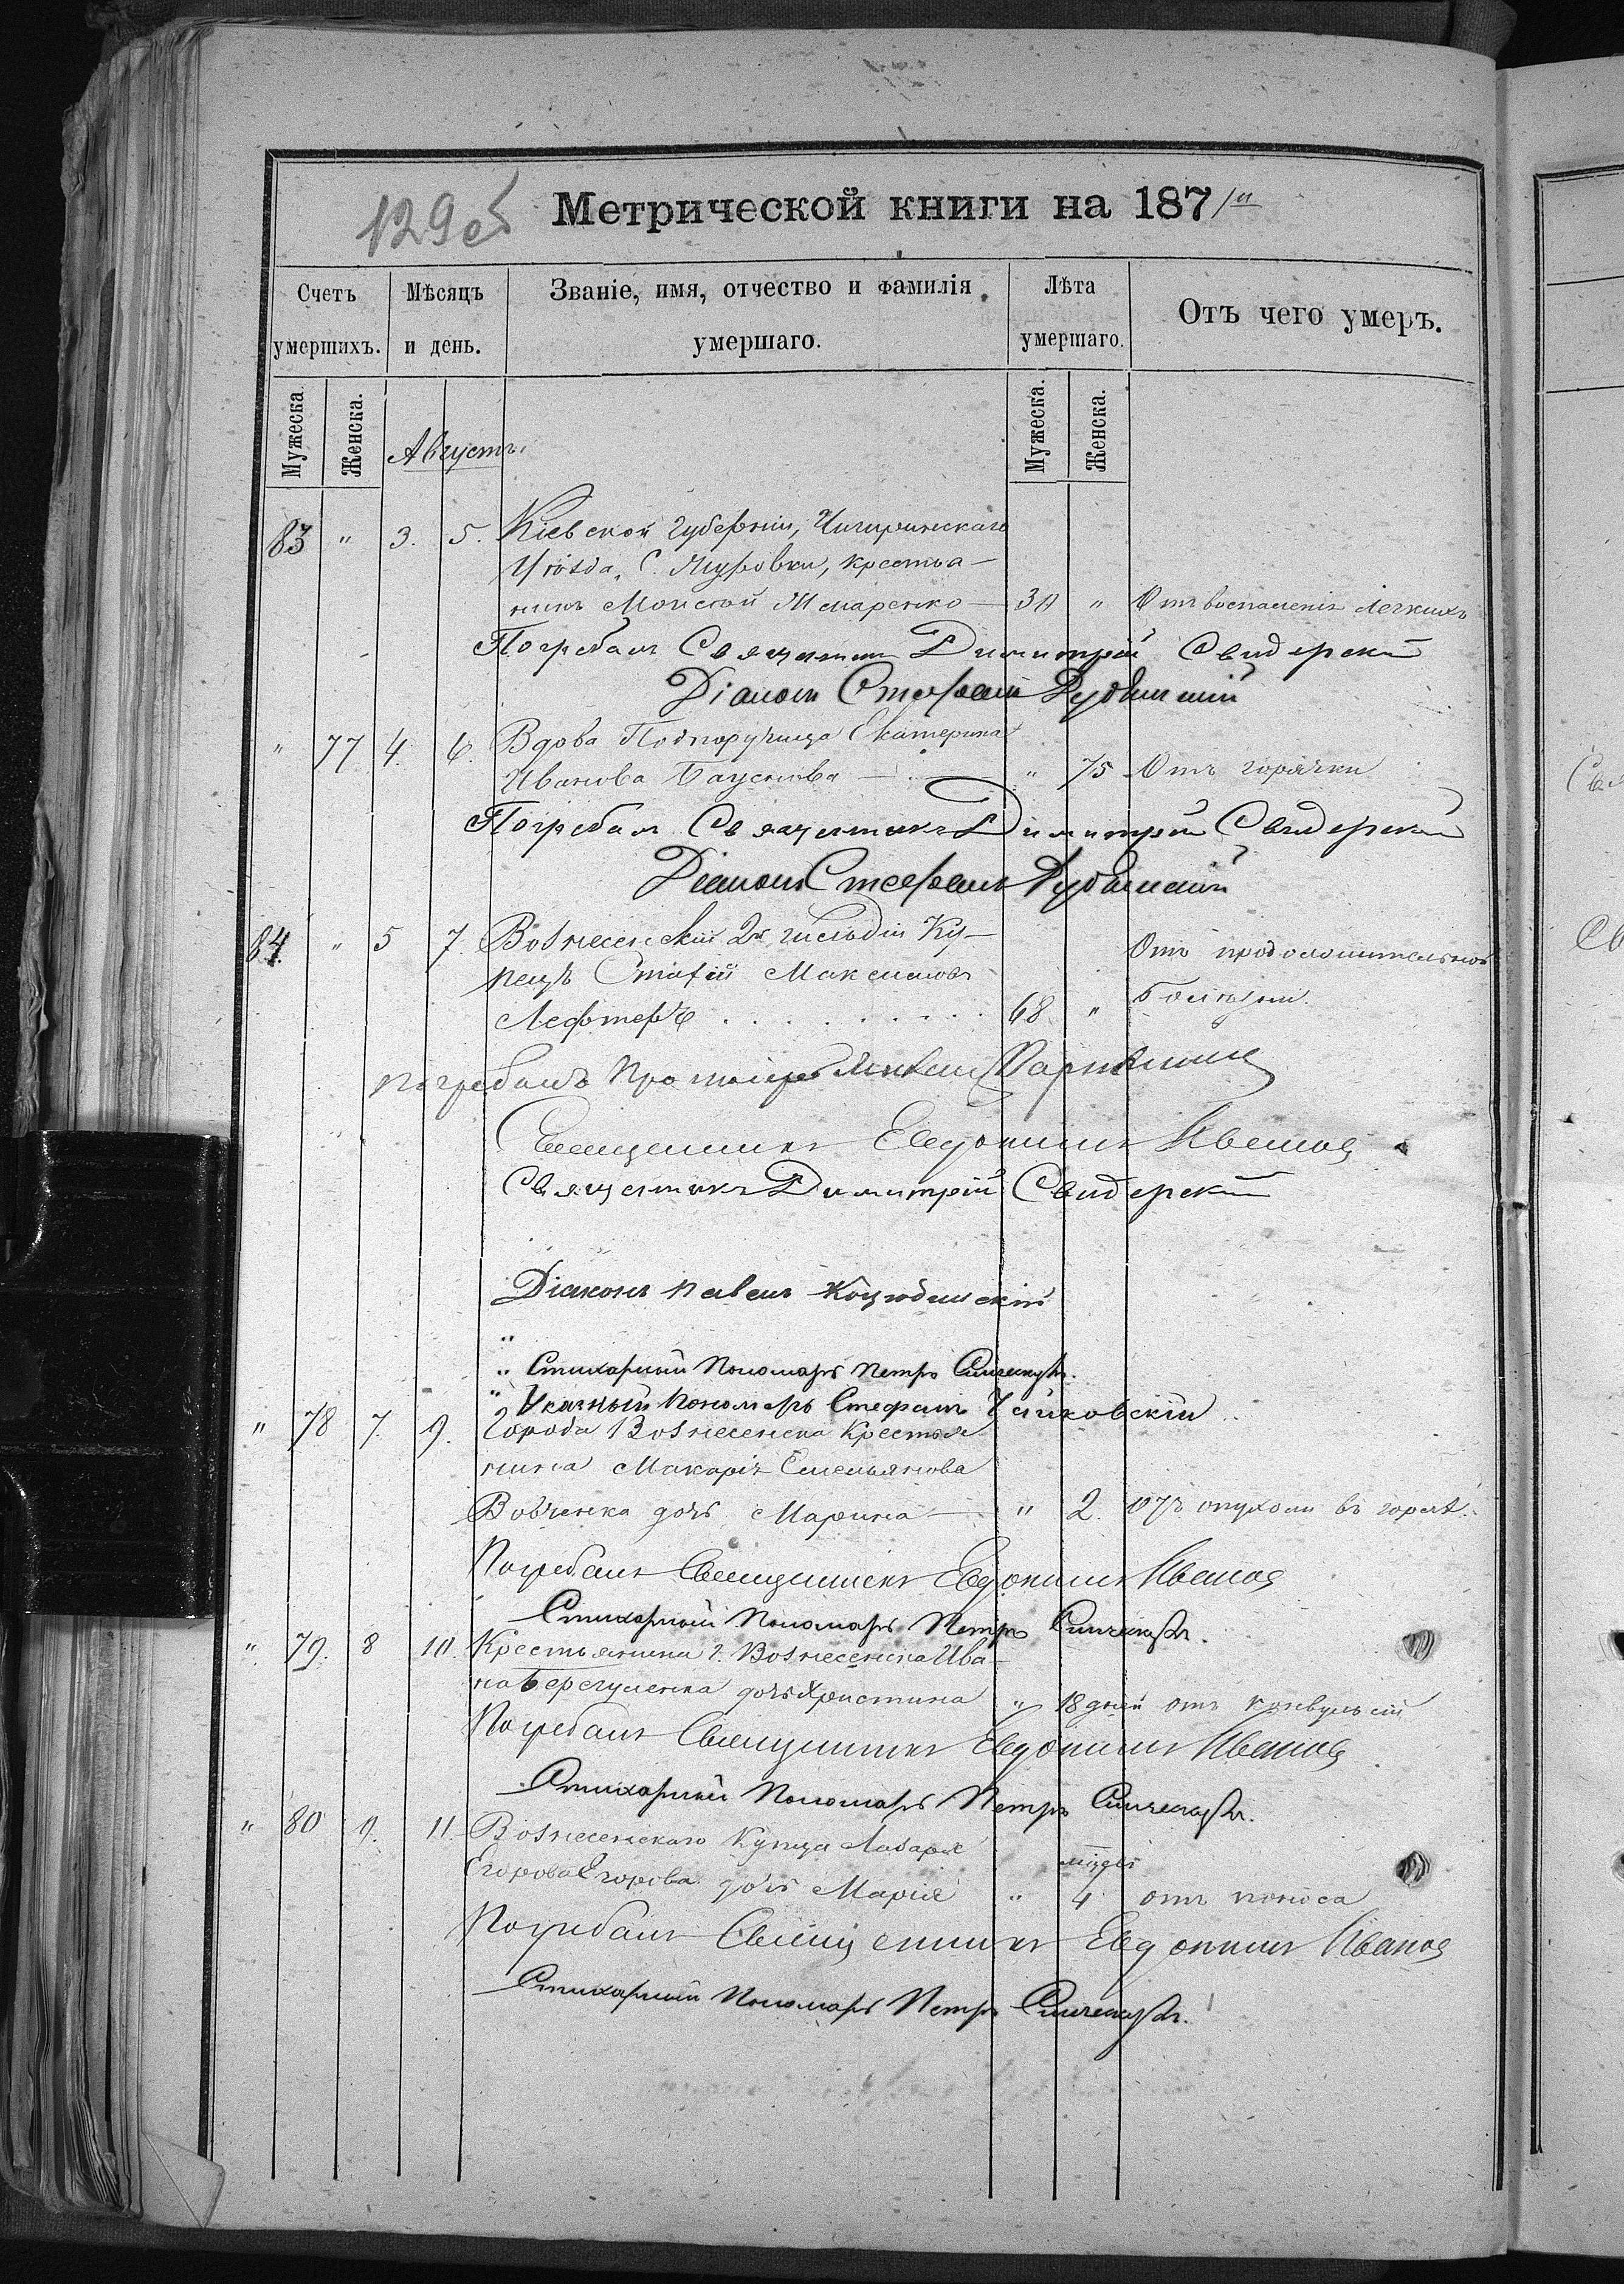 129об
Метрической книги на 1871 г
Счетъ умершихъ. Мѣсяцъ и день. Званіе, имя, отчество и фамилія умершаго. Лѣта умершаго. Отъ чего умеръ.
Мужеска. Женска. Мужеска. Женска.
Августъ.
83 " 3. 5. Кіевской губерніи, Чигиринскаго
Уѣзда, С. крестья-
нинъ Моисей " Отъ воспаленія легкихъ
Погребалъ Священникъ Димитрій Свидерскій
Діаконъ Стефанъ
" 77 4. 6. Вдова Подпоручица Екатерина
Иванова " 75 Отъ горячки
Погребалъ Священникъ Димитрій Свидерскій
Діаконъ Стефанъ
84. " 5 7 Вознесенскій 2й гильдіи Ку-
пецъ Максимовъ Отъ продолжительной
Лефтеръ . . . . . . . . . 68 " болѣзни.
Погребалъ Протоіерей
Священникъ Евдокимъ Ивановъ
Священникъ Димитрій Свидерскій
Діаконъ Павелъ Коцюбинскій
"
" Стихарный Пономарь Петръ
" Указный Пономарь Стефанъ Чайковскій
" 78 7. 9. Города Вознесенска Крестья
нина Макарія Емельянова
Вовченка дочь Марина " 2. отъ опухоли въ горлѣ.
Погребалъ Священникъ Евдокимъ Ивановъ
Стихарный Пономарь Петръ
" 79. 8 10. Крестьянина г. Вознесенска Ива-
на дочь Христина " 18 дней отъ конвульсій
Погребалъ Священникъ Евдокимъ Ивановъ
Стихарный Пономарь Петръ
" 80 9. 11. Вознесенскаго Купца Лазаря
Егорова Егорова дочь Марія " 4 отъ поноса
Погребалъ Священникъ Евдокимъ Ивановъ
Стихарный Пономарь Петръ